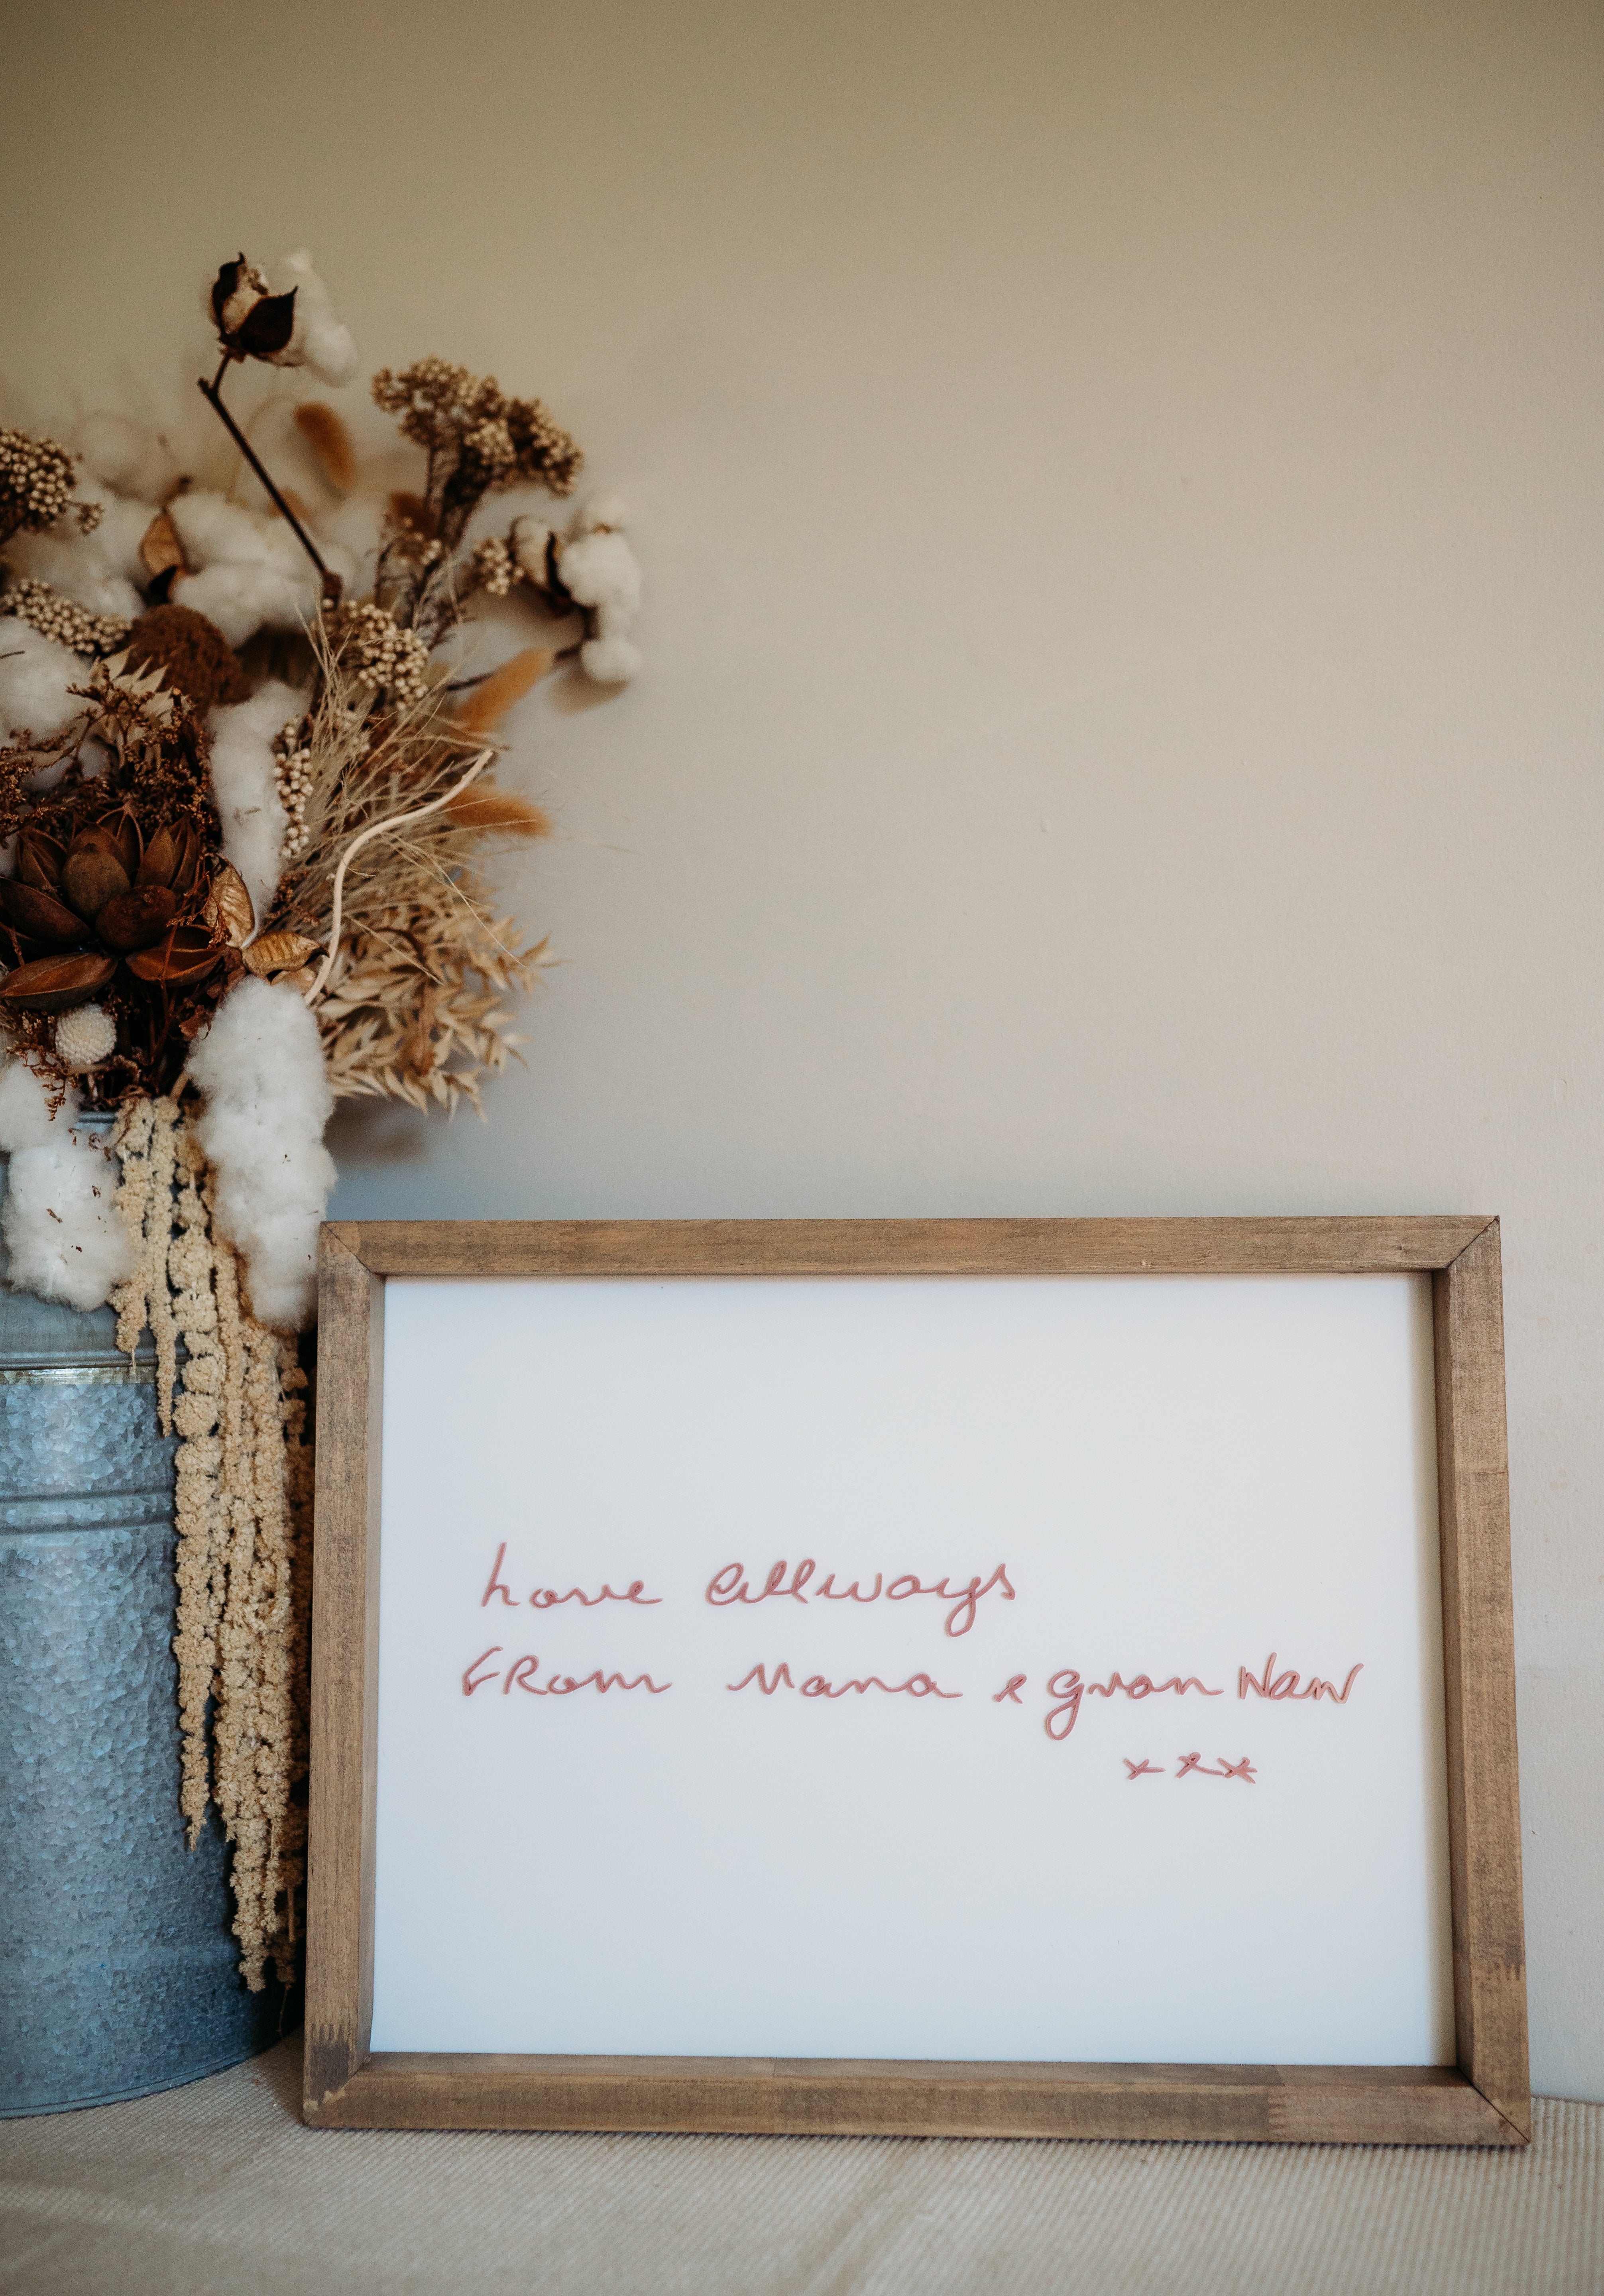 Love allways
FRom Mana & gran Naw
xxx